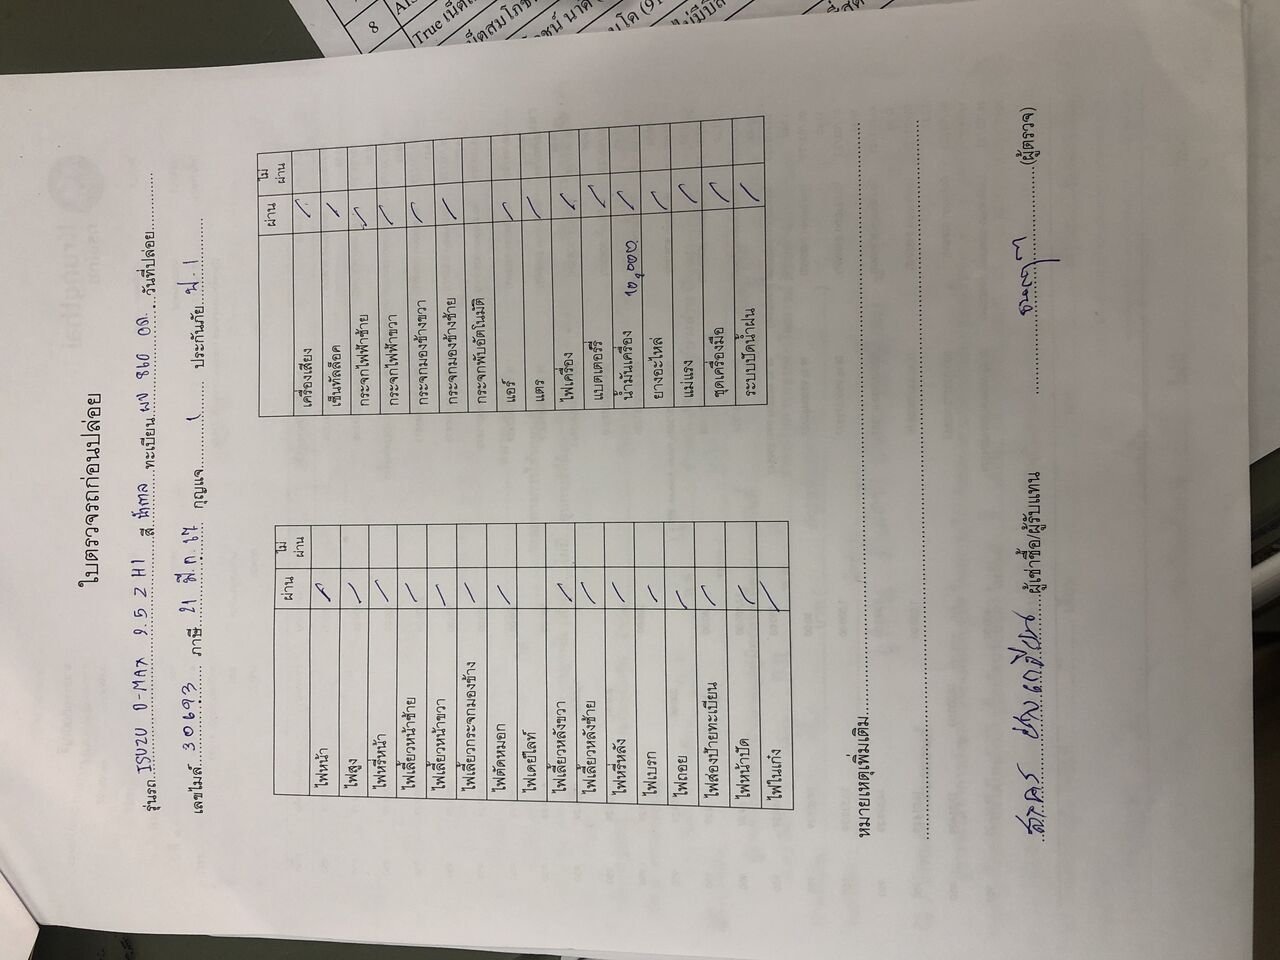 ใบตรวจรถก่อนปล่อย
รุ่นรถ ISUZU D-MAX 2.5 Z HI สี น้ำตาล ทะเบียน ผง 860 วันที่ปล่อย
เลขไมล์ 30693 ภาษี 21 มี.ค 67 กุญแจ 1 ประกันภัย ป.1
ผ่าน ไม่ผ่าน
ไฟหน้า ✓
ไฟสูง ✓
ไฟหรี่หน้า ✓
ไฟเลี้ยวหน้าซ้าย ✓
ไฟเลี้ยวหน้าขวา ✓
ไฟเลี้ยวกระจกมองข้าง ✓
ไฟตัดหมอก ✓
ไฟเดย์ไลท์
ไฟเลี้ยวหลังขวา ✓
ไฟเลี้ยวหลังซ้าย ✓
ไฟหรี่หลัง ✓
ไฟเบรก ✓
ไฟถอย ✓
ไฟส่องป้ายทะเบียน ✓
ไฟหน้าปัด ✓
ไฟในเก๋ง ✓
ผ่าน ไม่ผ่าน
เครื่องเสียง ✓
เซ็นทัลล็อค ✓
กระจกไฟฟ้าซ้าย ✓
กระจกไฟฟ้าขวา ✓
กระจกมองข้างขวา ✓
กระจกมองข้างซ้าย ✓
กระจกพับอัตโนมัติ
แอร์ ✓
แตร ✓
ไฟเครื่อง ✓
แบตเตอร์รี่ ✓
น้ำมันเครื่อง 10,000 ✓
ยางอะไหล่ ✓
แม่แรง ✓
ชุดเครื่องมือ ✓
ระบบปัดน้ำฝน ✓
หมายเหตุเพิ่มเติม
ผู้เช่าซื้อ/ผู้รับแทน (ผู้ตรวจ)